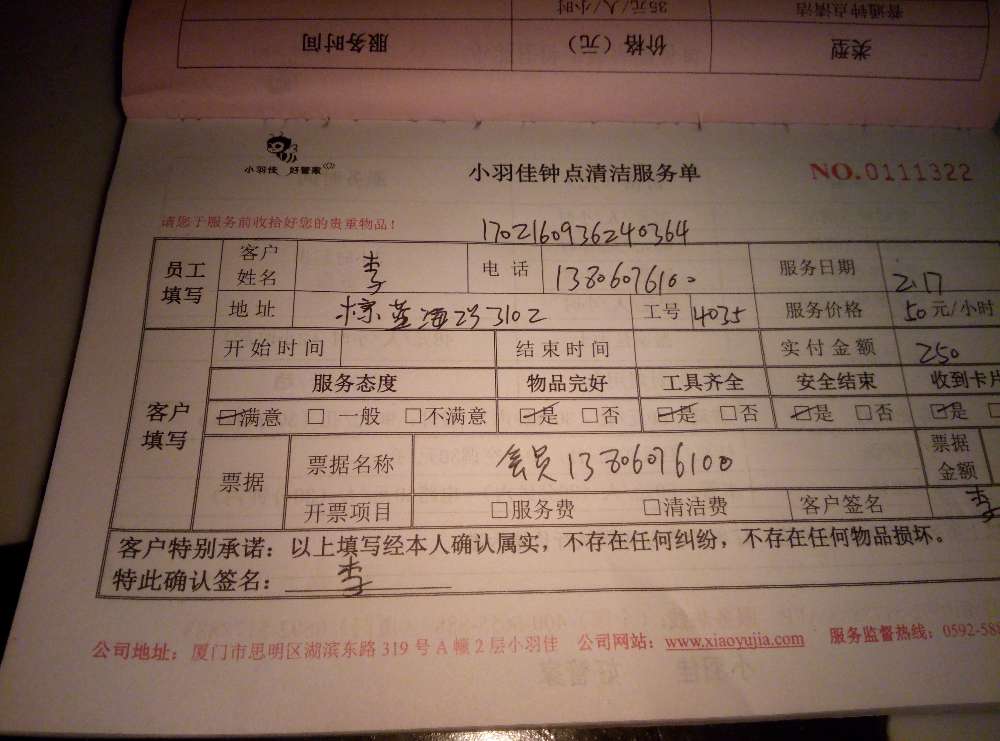 普通钟点清洁 35元/人/小时
类型 价格（元） 服务时间
小羽佳 好管家
小羽佳钟点清洁服务单 NO.0111322
请您于服务前收拾好您的贵重物品！
1702160936240364
员工填写 客户姓名 李 电话 13806076100 服务日期 2.17
地址 2号3102 工号 4035 服务价格 50元/小时
客户填写 开始时间 结束时间 实付金额 250
服务态度 物品完好 工具齐全 安全结束 收到卡片
☑满意 □一般 □不满意 ☑是 □否 ☑是 □否 ☑是 □否 ☑是 □
票据 票据名称 会员13806076100 票据金额
开票项目 □服务费 □清洁费 客户签名 李
客户特别承诺：以上填写经本人确认属实，不存在任何纠纷，不存在任何物品损坏。
特此确认签名：李
公司地址：厦门市思明区湖滨东路319号A幢2层小羽佳 公司网站：www.xiaoyujia.com 服务监督热线：0592-58